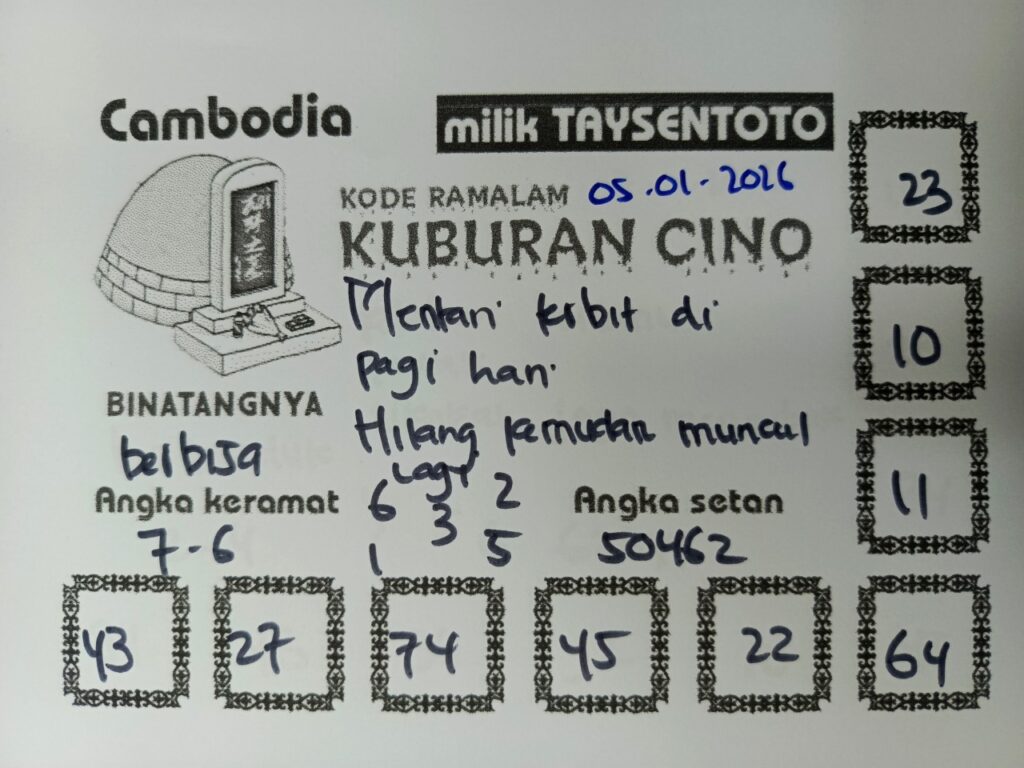 Cambodia
milik TAYSENTOTO
KODE RAMALAM 05.01.2026
KUBURAN CINO
Mentari terbit di
pagi hari.
Hilang kemudian muncul
lagi
BINATANGNYA
belbisa
Angka keramat
7-6
6 2
3
1 5
Angka setan
50462
23
10
11
43 27 74 45 22 64